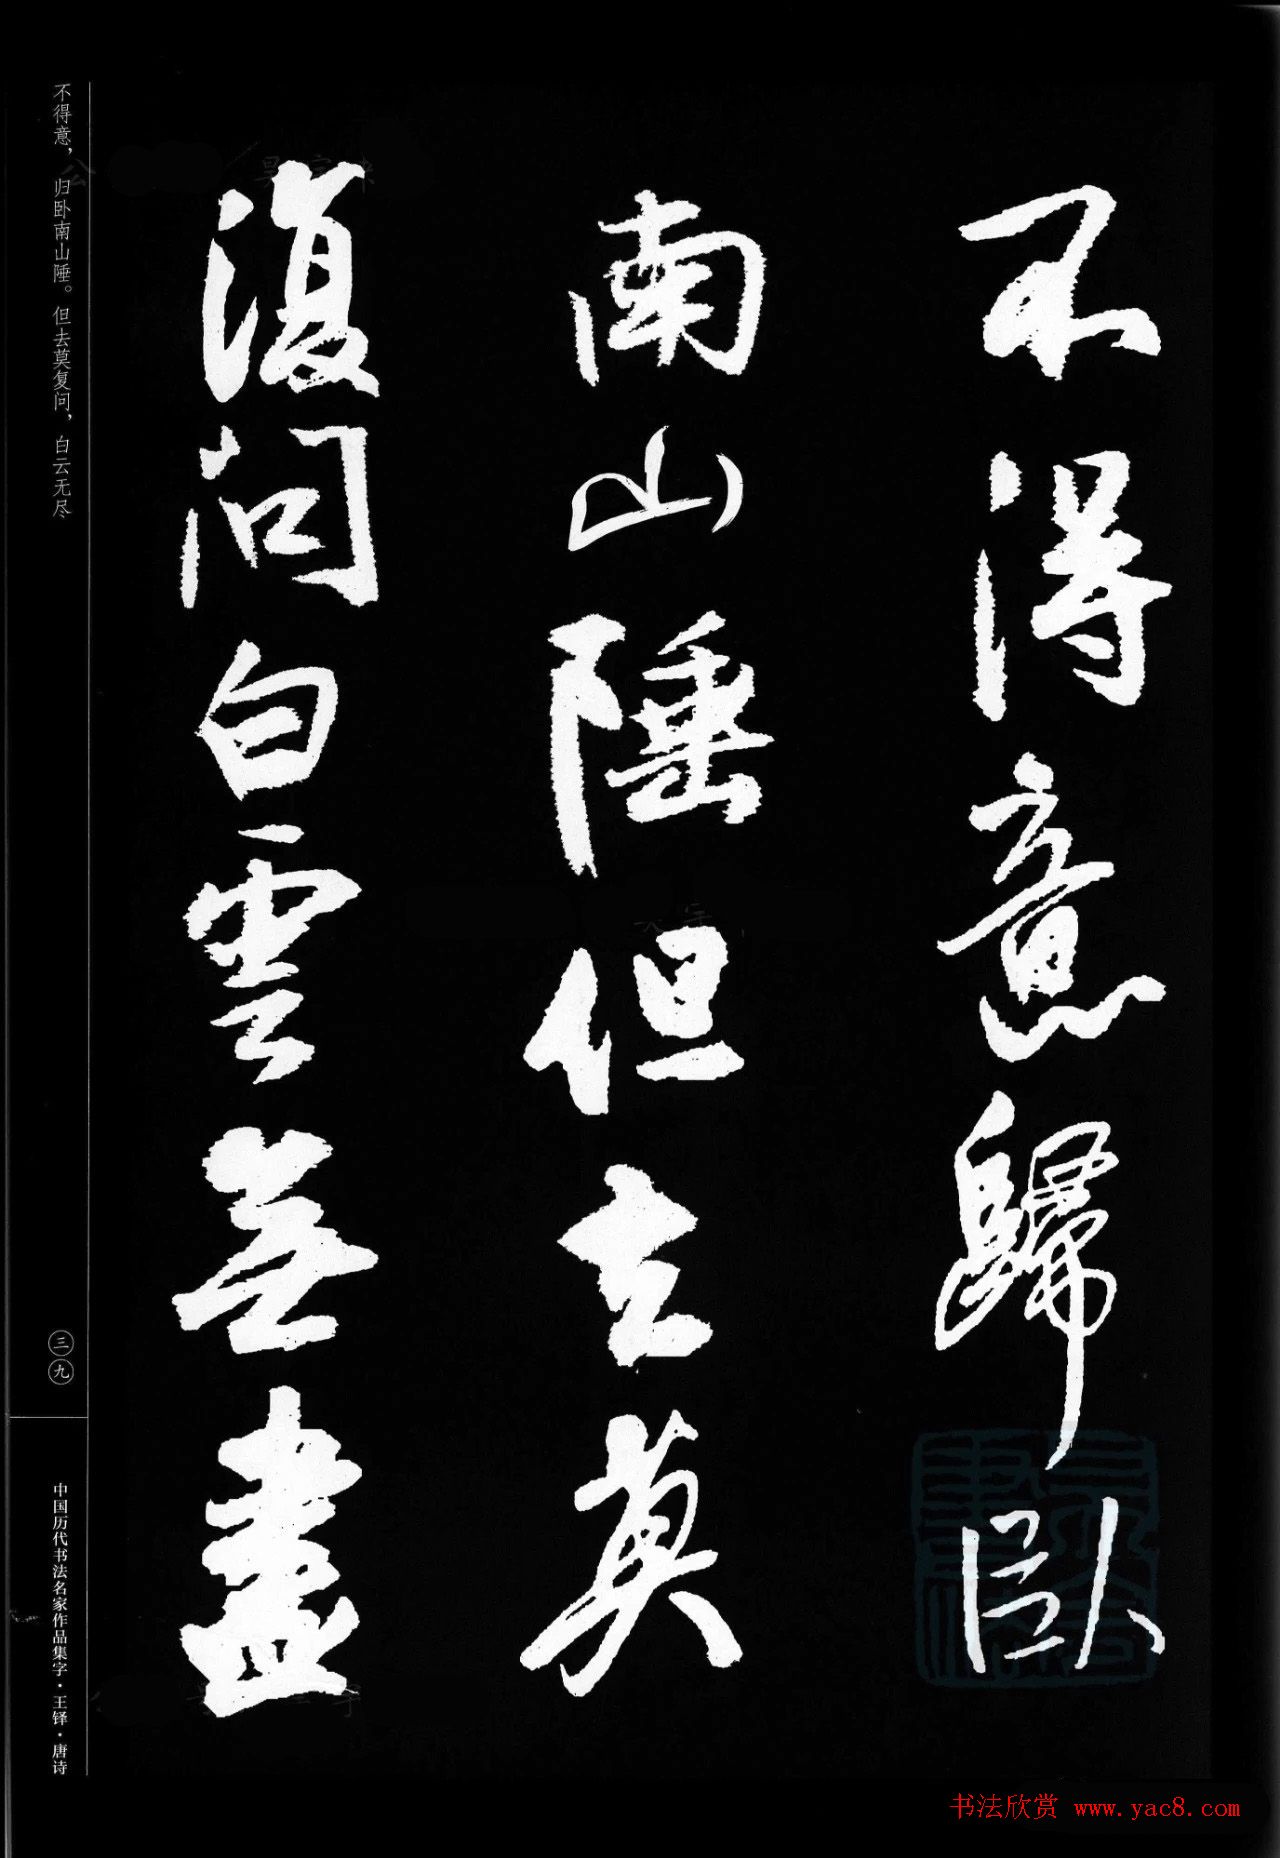 不得意歸臥
南山陲但去莫
復問白雲無盡
不得意，归卧南山陲。但去莫复问，白云无尽
三九
中国历代书法名家作品集字·王铎·唐诗
书法欣赏 www.yac8.com